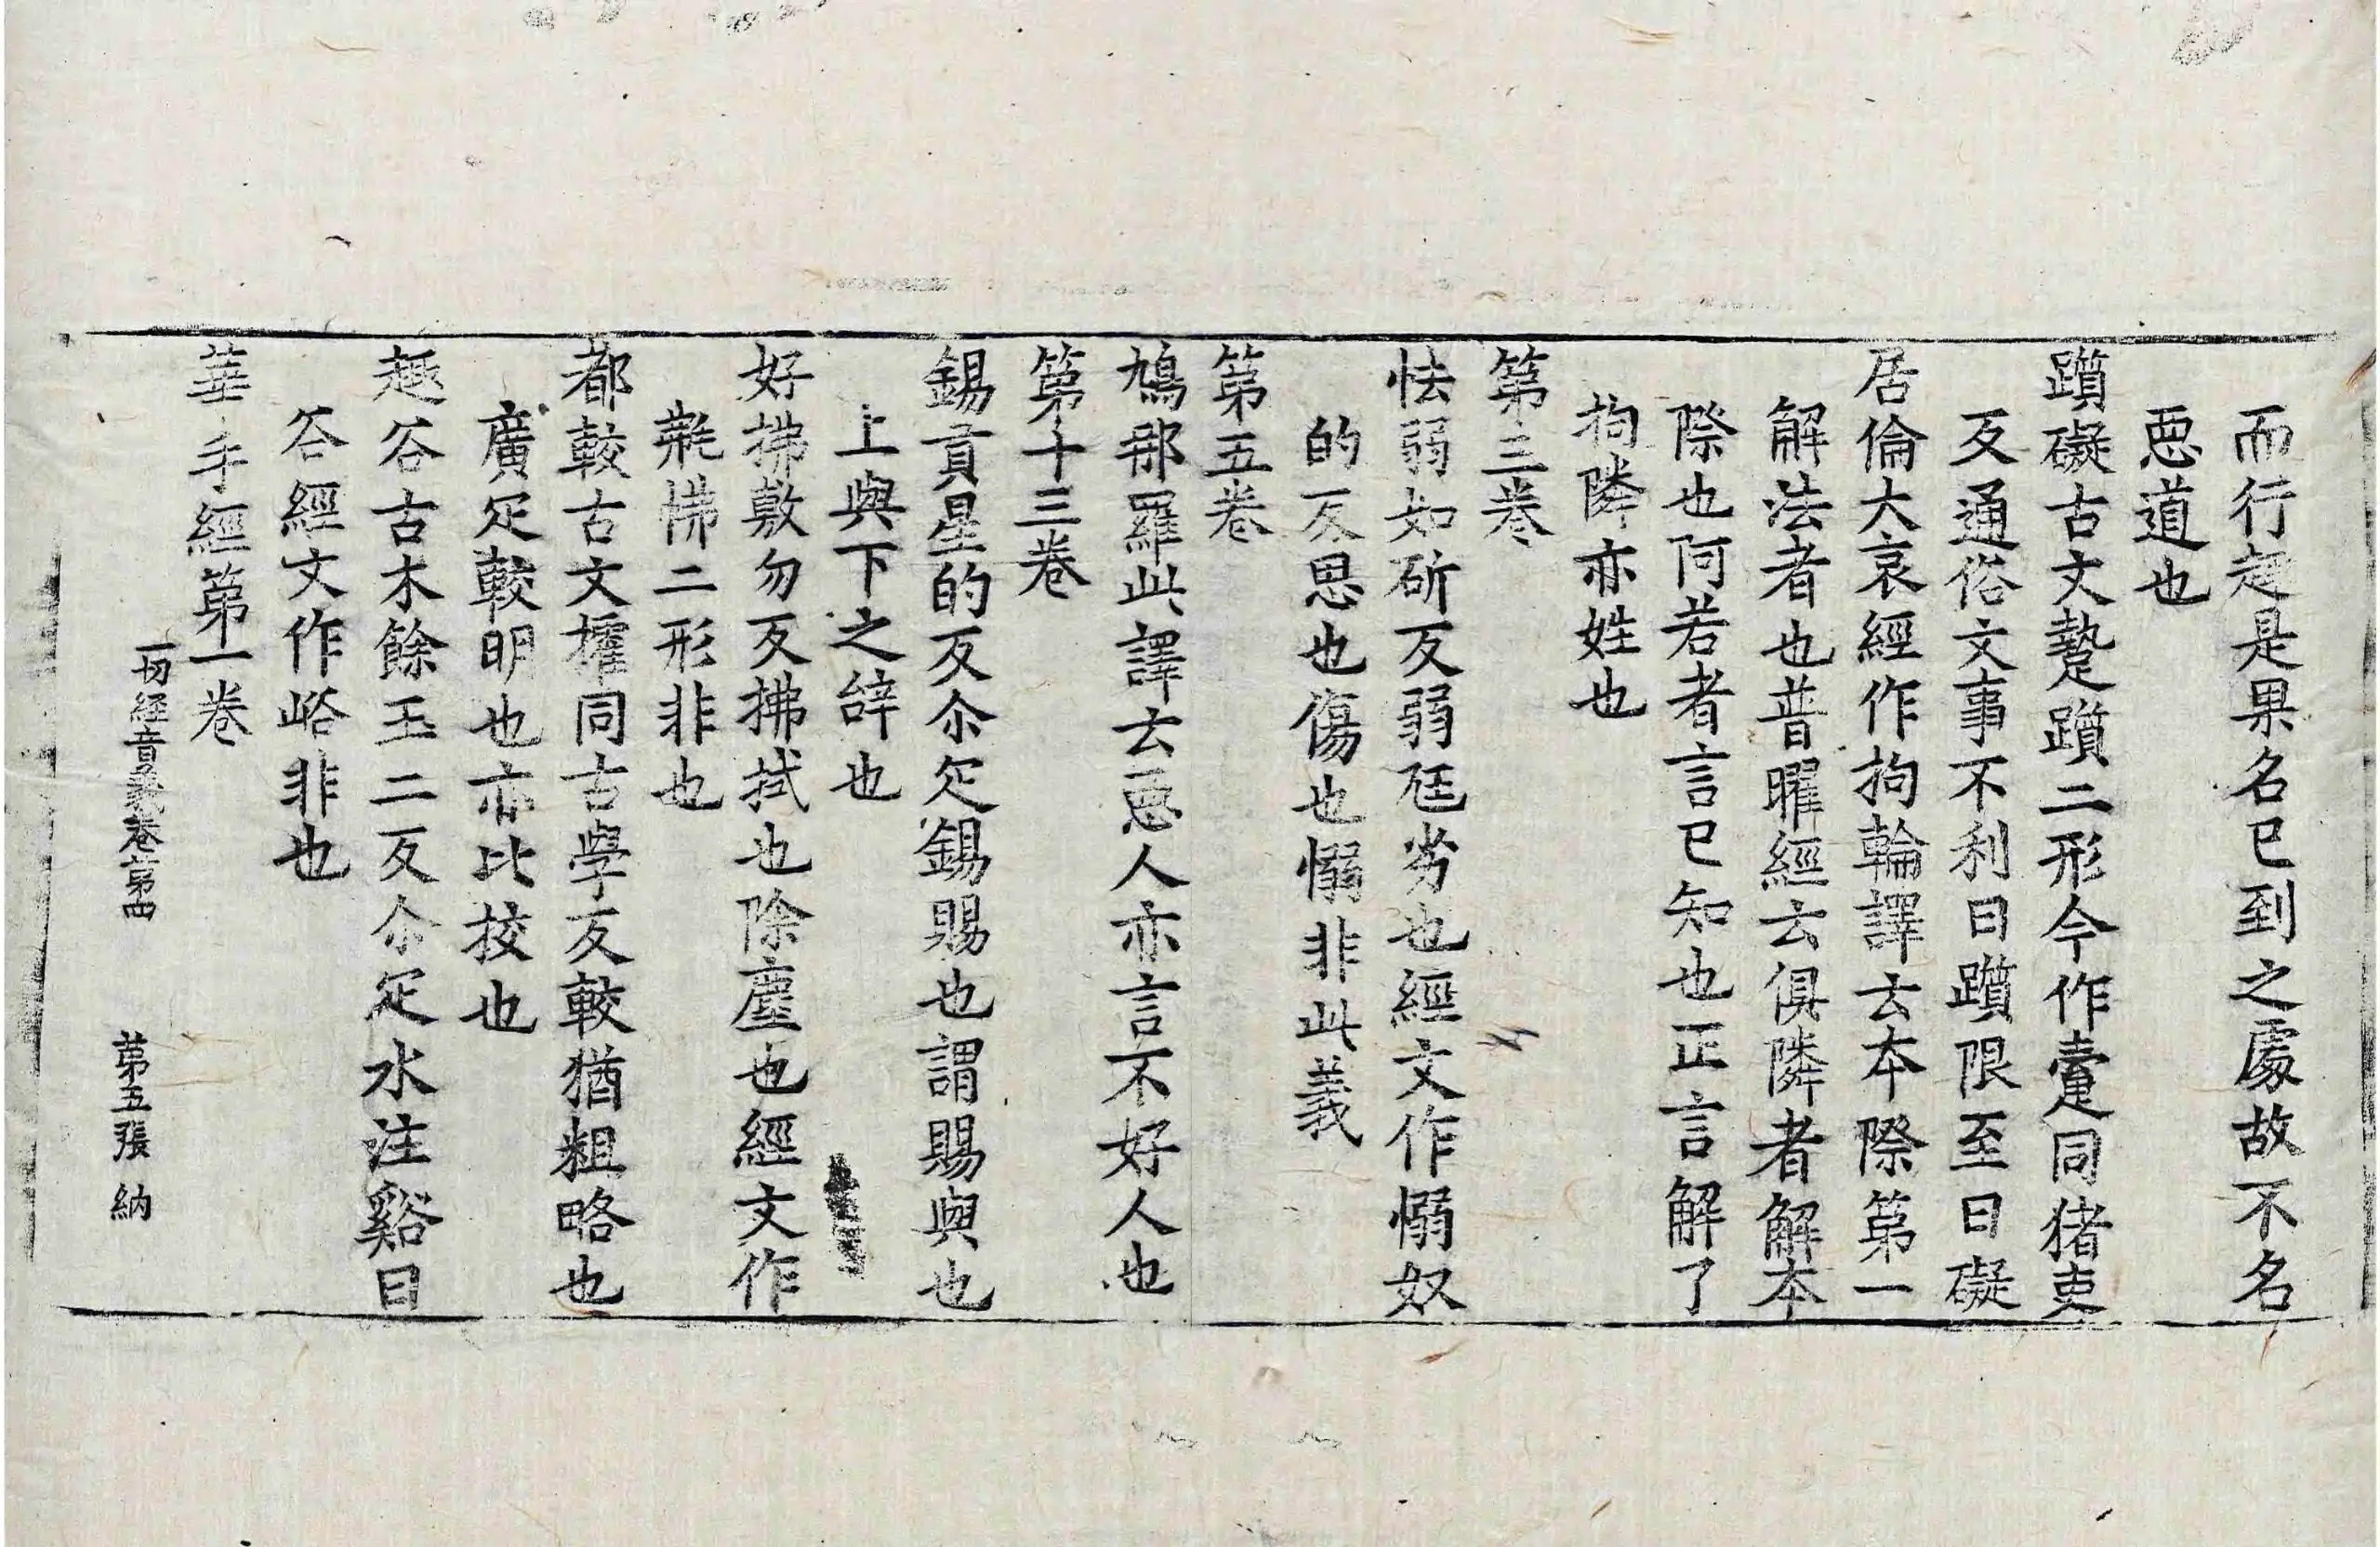 而行起是果名已到之處故不名
惡道也
躓礙古文𨆫躓二形今作疐同猪吏
反通俗文事不利曰躓限至曰礙
居倫大哀經作拘輪譯云本際第一
解法者也普曜經云俱隣者解本
際也阿若者言已知也正言解了
拘隣亦姓也
第三卷
怯弱如斫反弱尫劣也經文作愵奴
的反思也傷也愵非此義
第五卷
鳩那羅此譯云惡人亦言不好人也
第十三卷
錫貢星的反尒疋錫賜也謂賜與也
上與下之辝也
好拂敷勿反拂拭也除塵也經文作
㲠怫二形非也
都較古文攉同古學反較猶粗略也
廣疋較明也亦比挍也
趣谷古木餘玉二反尒疋水注谿曰
谷經文作峪非也
華手經第一卷
一切經音義卷第四 第五張 納